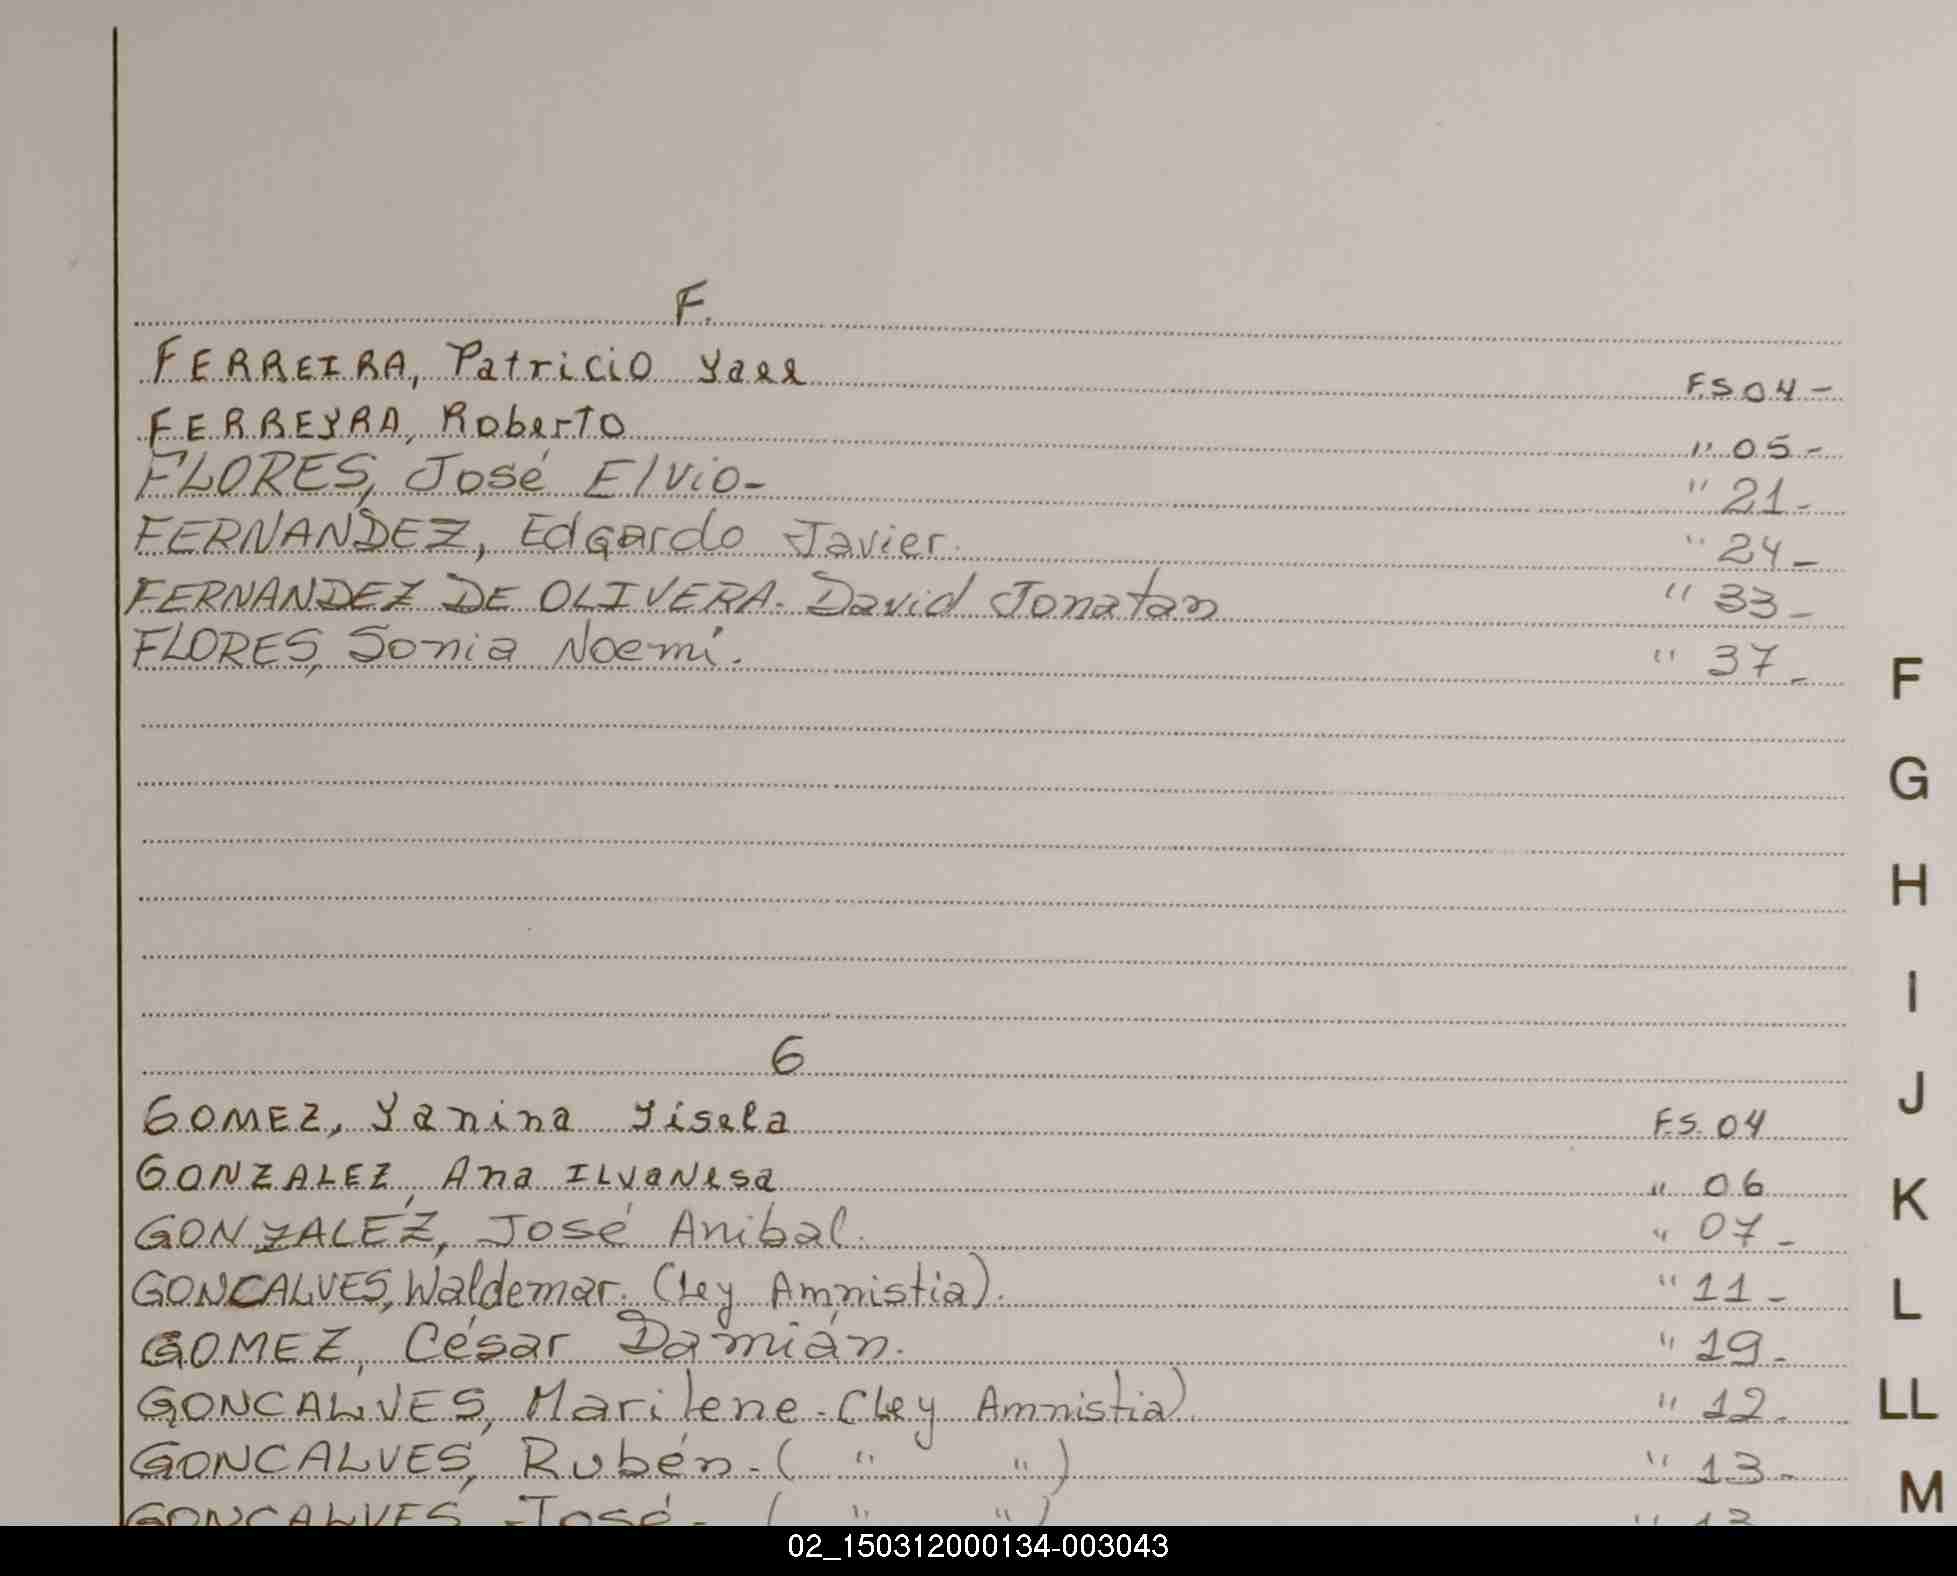 F.
FERREIRA, Patricio Yael F.S 04-
FERREYRA, Roberto " 05-
FLORES, José Elvio- " 21-
FERNANDEZ, Edgardo Javier. " 24-
FERNANDEZ DE OLIVERA. David Jonatan " 33-
FLORES, Sonia Noemí. " 37-
F
G
H
I
G
J
GOMEZ, Yanina Yisela F.S. 04
GONZALEZ, Ana ILVaNesa " 06
K
GONZALEZ, José Anibal. " 07-
GONCALVES, Waldemar. (Ley Amnistia). " 11-
L
GOMEZ, César Damián. " 19-
GONCALVES, Marilene-(Ley Amnistia). " 12-
LL
GONCALVES, Rubén-( " " ) " 13-
M
GONCALVES, José- ( " " ) " 13
02_150312000134-003043